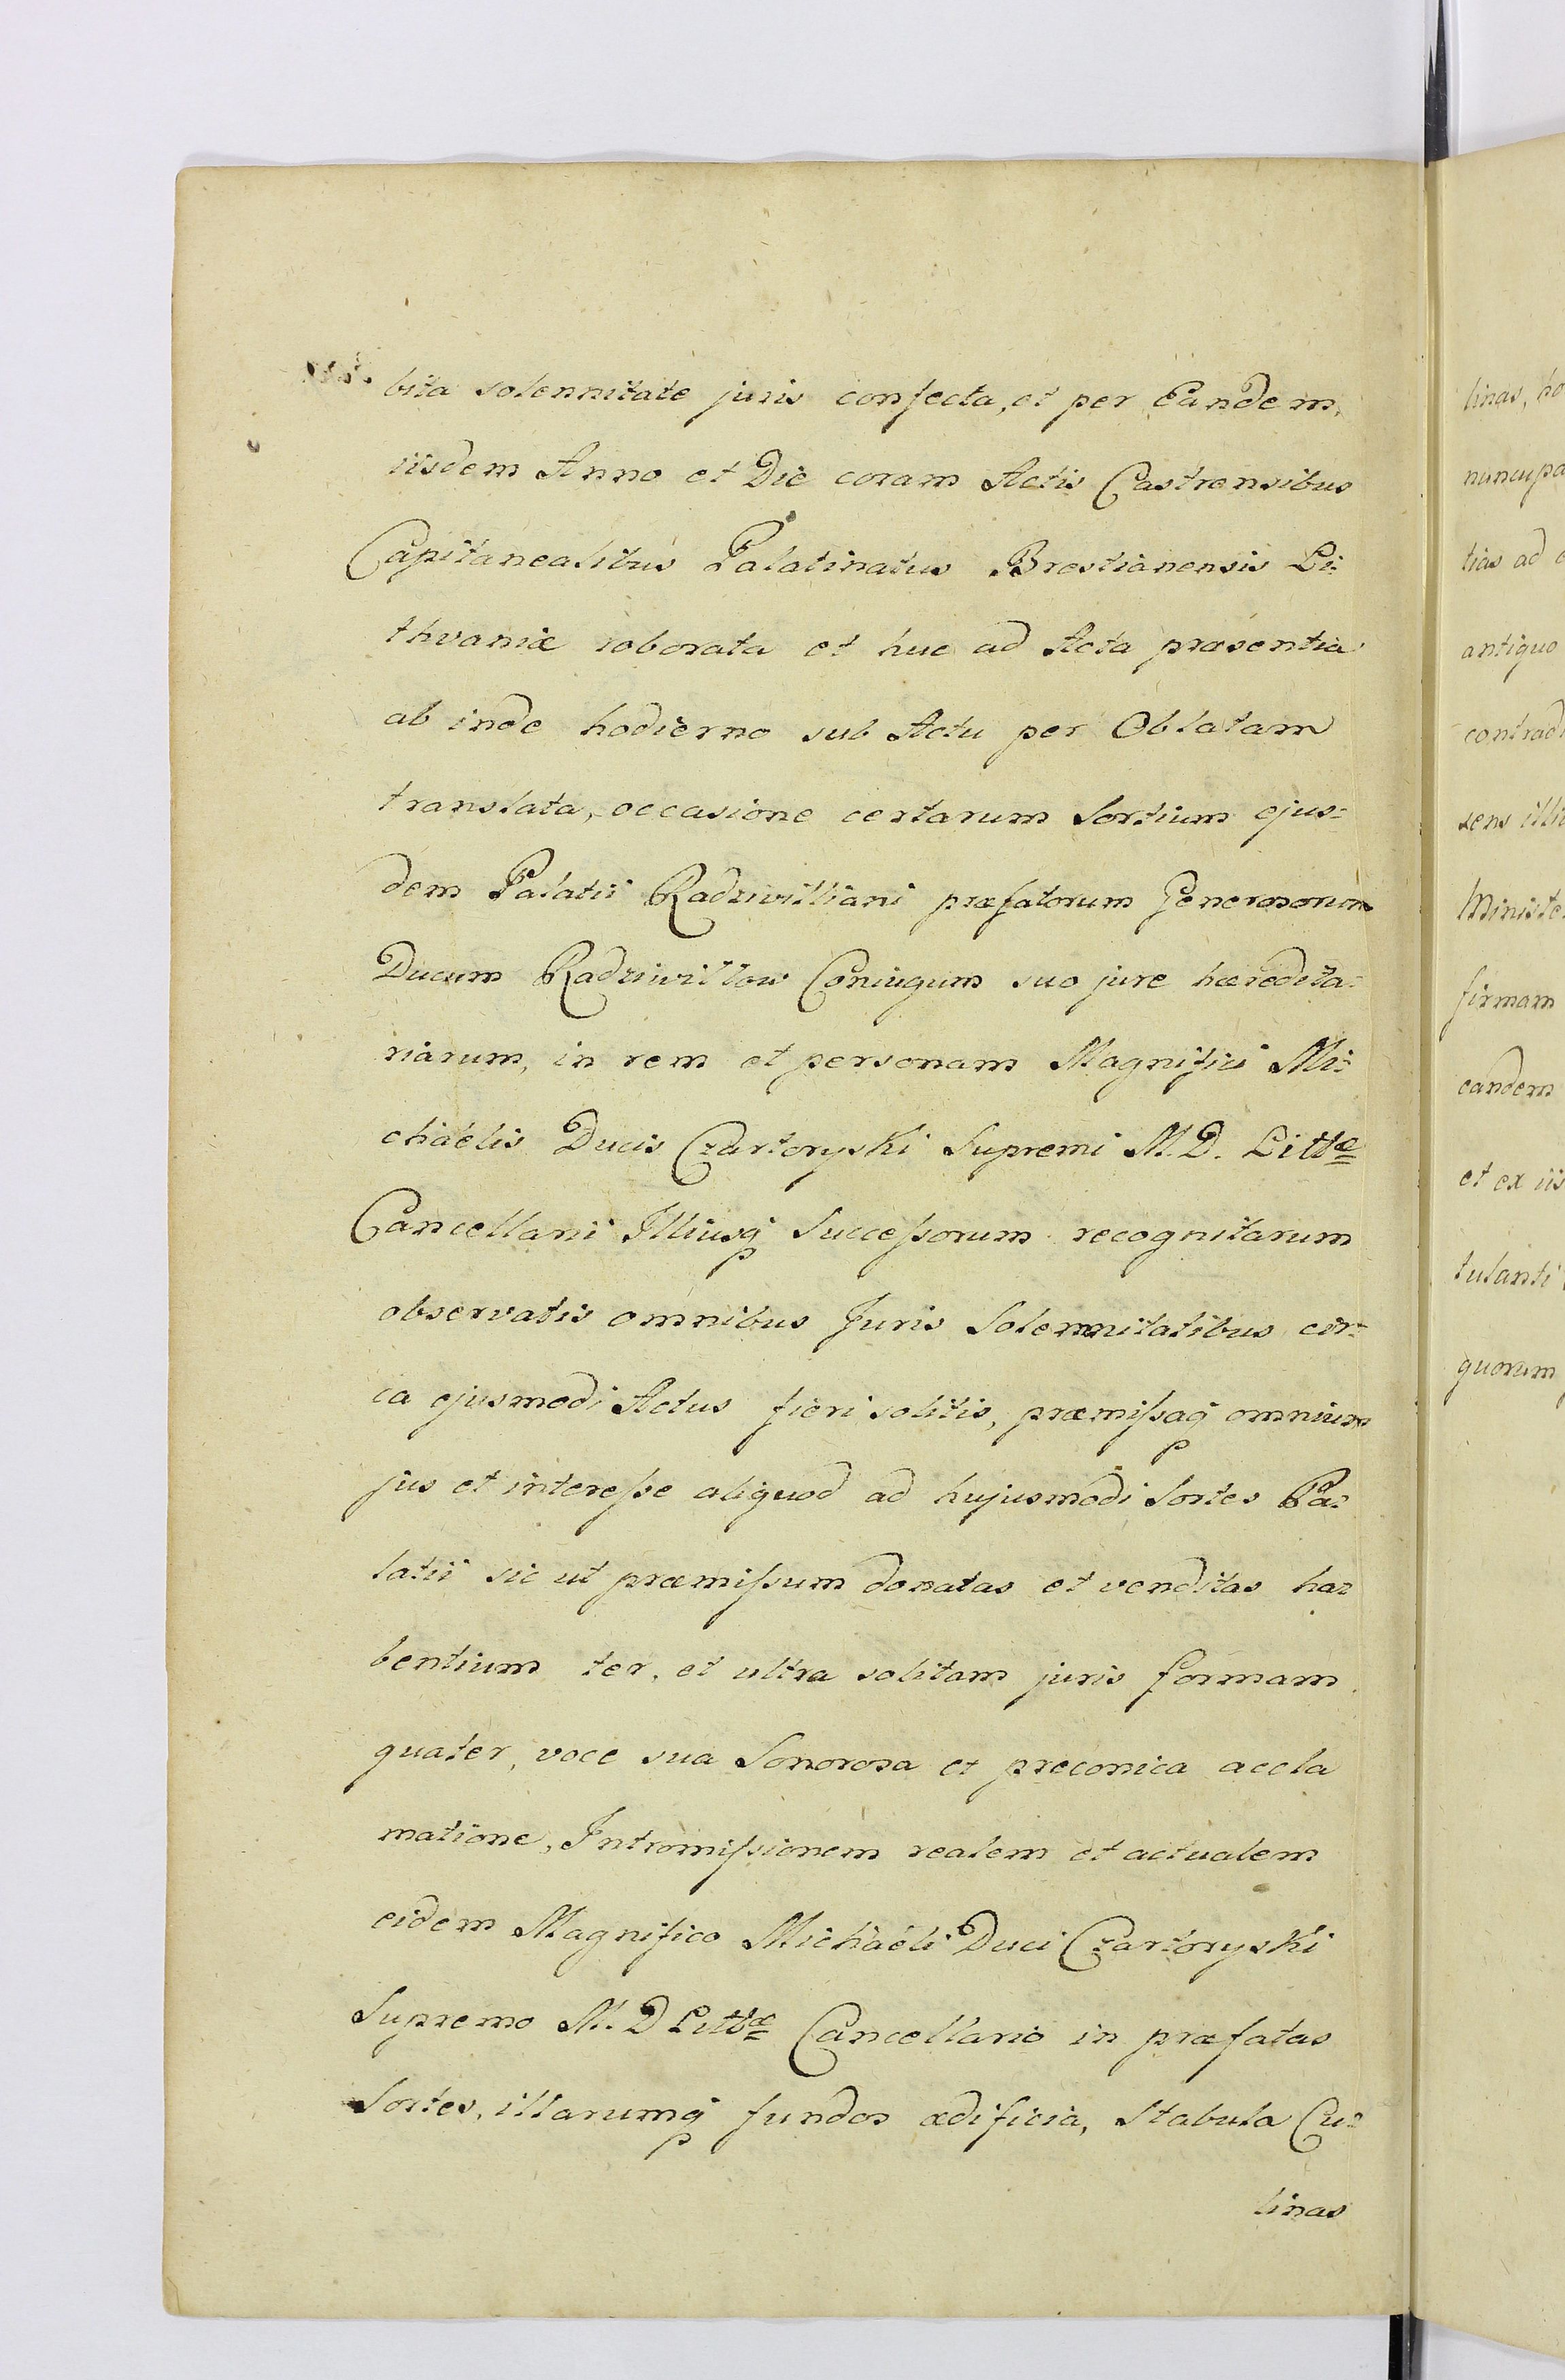 bita solennitate juris confecta, et per Eandem,
iisdem Anno et Die coram Actis Castrensibus
Capitanealibus Palatinatus Brestianensis Li=
thvaniæ roborata et huc ad Acta præsentia
ab inde hodierno sub Actu per Oblatam
translata, occasione certarum Sortium ejus=
dem Palatii Radziwilliani præfatorum Generosorum
Ducum Radziwiłłow Coniugum suo jure hæredita=
riarum, in rem et personam Magnifici Mi=
chaëlis Ducis Czartoryski Supremi M. D. Littæ
Cancellarii Illiusq Succeſsorum recognitarum
observatis omnibus Juris Solemnitatibus cir=
ca ejusmodi Actus fieri solitis, præmiſsaq omnium
jus et intereſse aliquod ad hujusmodi Sortes Pa=
latii sic ut præmiſsum donatas et venditas ha=
bentium ter, et ultra solitam juris formam
quater, voce sua Sonorosa et preconica accla
matione, Intromiſsionem realem et actualem
eidem Magnifico Michaëli Duci Czartoryski
Supremo M. D Littæ Cancellario in præfatas
Sortes, illarumq fundos ædificia, Stabula Cu=
linas
linas, ho
nuncupa
tias ad
antiquo
contradi
sens illi
Ministe
firmam
eandem
et ex iis
tulanti
quorum